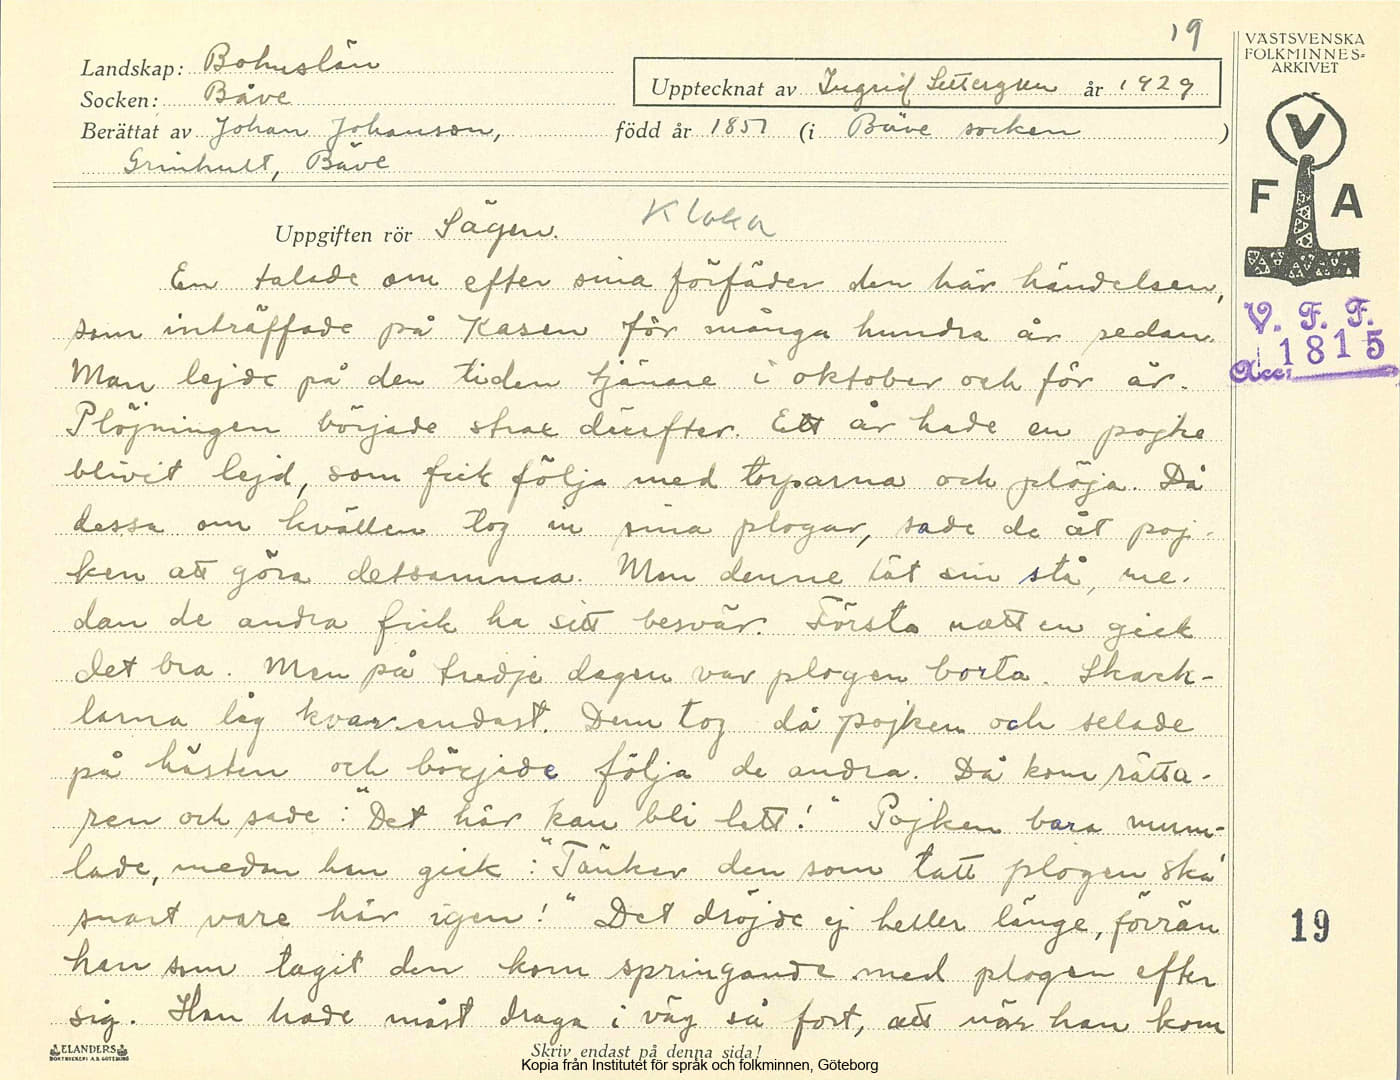 19
VÄSTSVENSKA
FOLKMINNES=
ARKIVET
Landskap: Bohuslän
Socken: Bäve
Upptecknat av Ingrid Settergren år 1929
Berättat av Johan Johanson, född år 1851 (i Bäve socken )
Grinhult, Bäve
V
F A
Uppgiften rör Sägen. Kloka
V. F. F.
Acc: 1815
En talade om efter sina förfäder den här händelsen,
som inträffade på Kasen för många hundra år sedan.
Man lejde på den tiden tjänare i oktober och för år.
Plöjningen började strax därefter. Ett år hade en pojke
blivit lejd, som fick följa med torparna och plöja. Då
dessa om kvällen tog in sina plogar, sade de åt poj-
ken att göra detsamma. Men denne lät sin stå, me-
dan de andra fick ha sitt besvär. Första natten gick
det bra. Men på tredje dagen var plogen borta. Skack-
larna låg kvar endast. Dem tog då pojken och selade
på hästen och började följa de andra. Då kom rätta-
ren och sade: "Det här kan bli lett!" Pojken bara mum-
lade, medan han gick: "Tänker den som tatt plogen ska'
snart vare här igen!" Det dröjde ej heller länge, förrän
han som tagit den kom springande med plogen efter
sig. Han hade måst draga i väg så fort, att när han kom
19
ELANDERS
BOKTRYCKERI A.B. GÖTEBORG
Skriv endast på denna sida!
Kopia från Institutet för språk och folkminnen, Göteborg